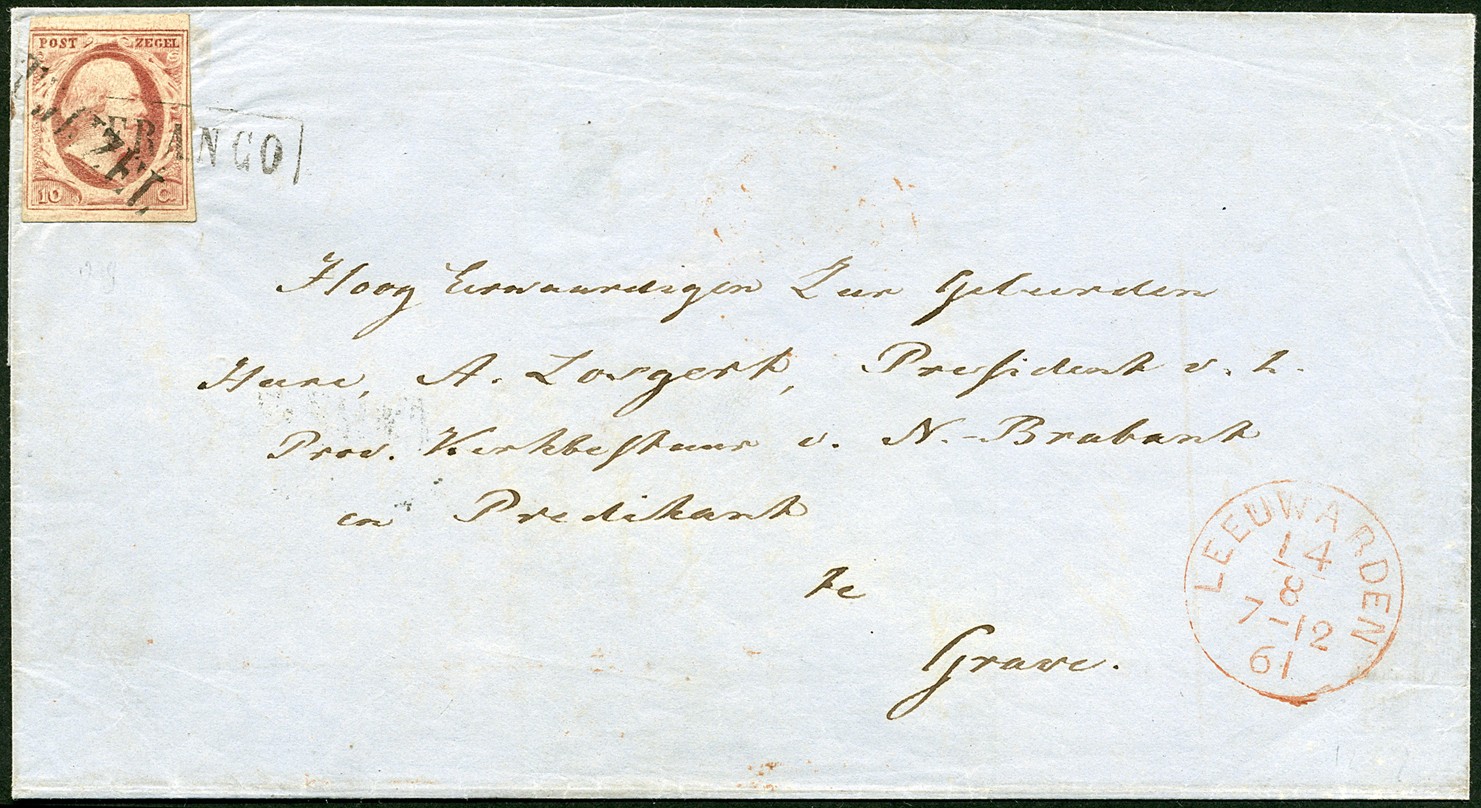 POST ZEGEL
FRANCO
10 C.
Hoog Eerwaardigen Zeer Geleerden
Heere, A. President v. h.
Prov. Kerkbestuur v. N.-Brabant
en Predikant
te
Grave.
LEEUWARDEN
14
8
7-12
61